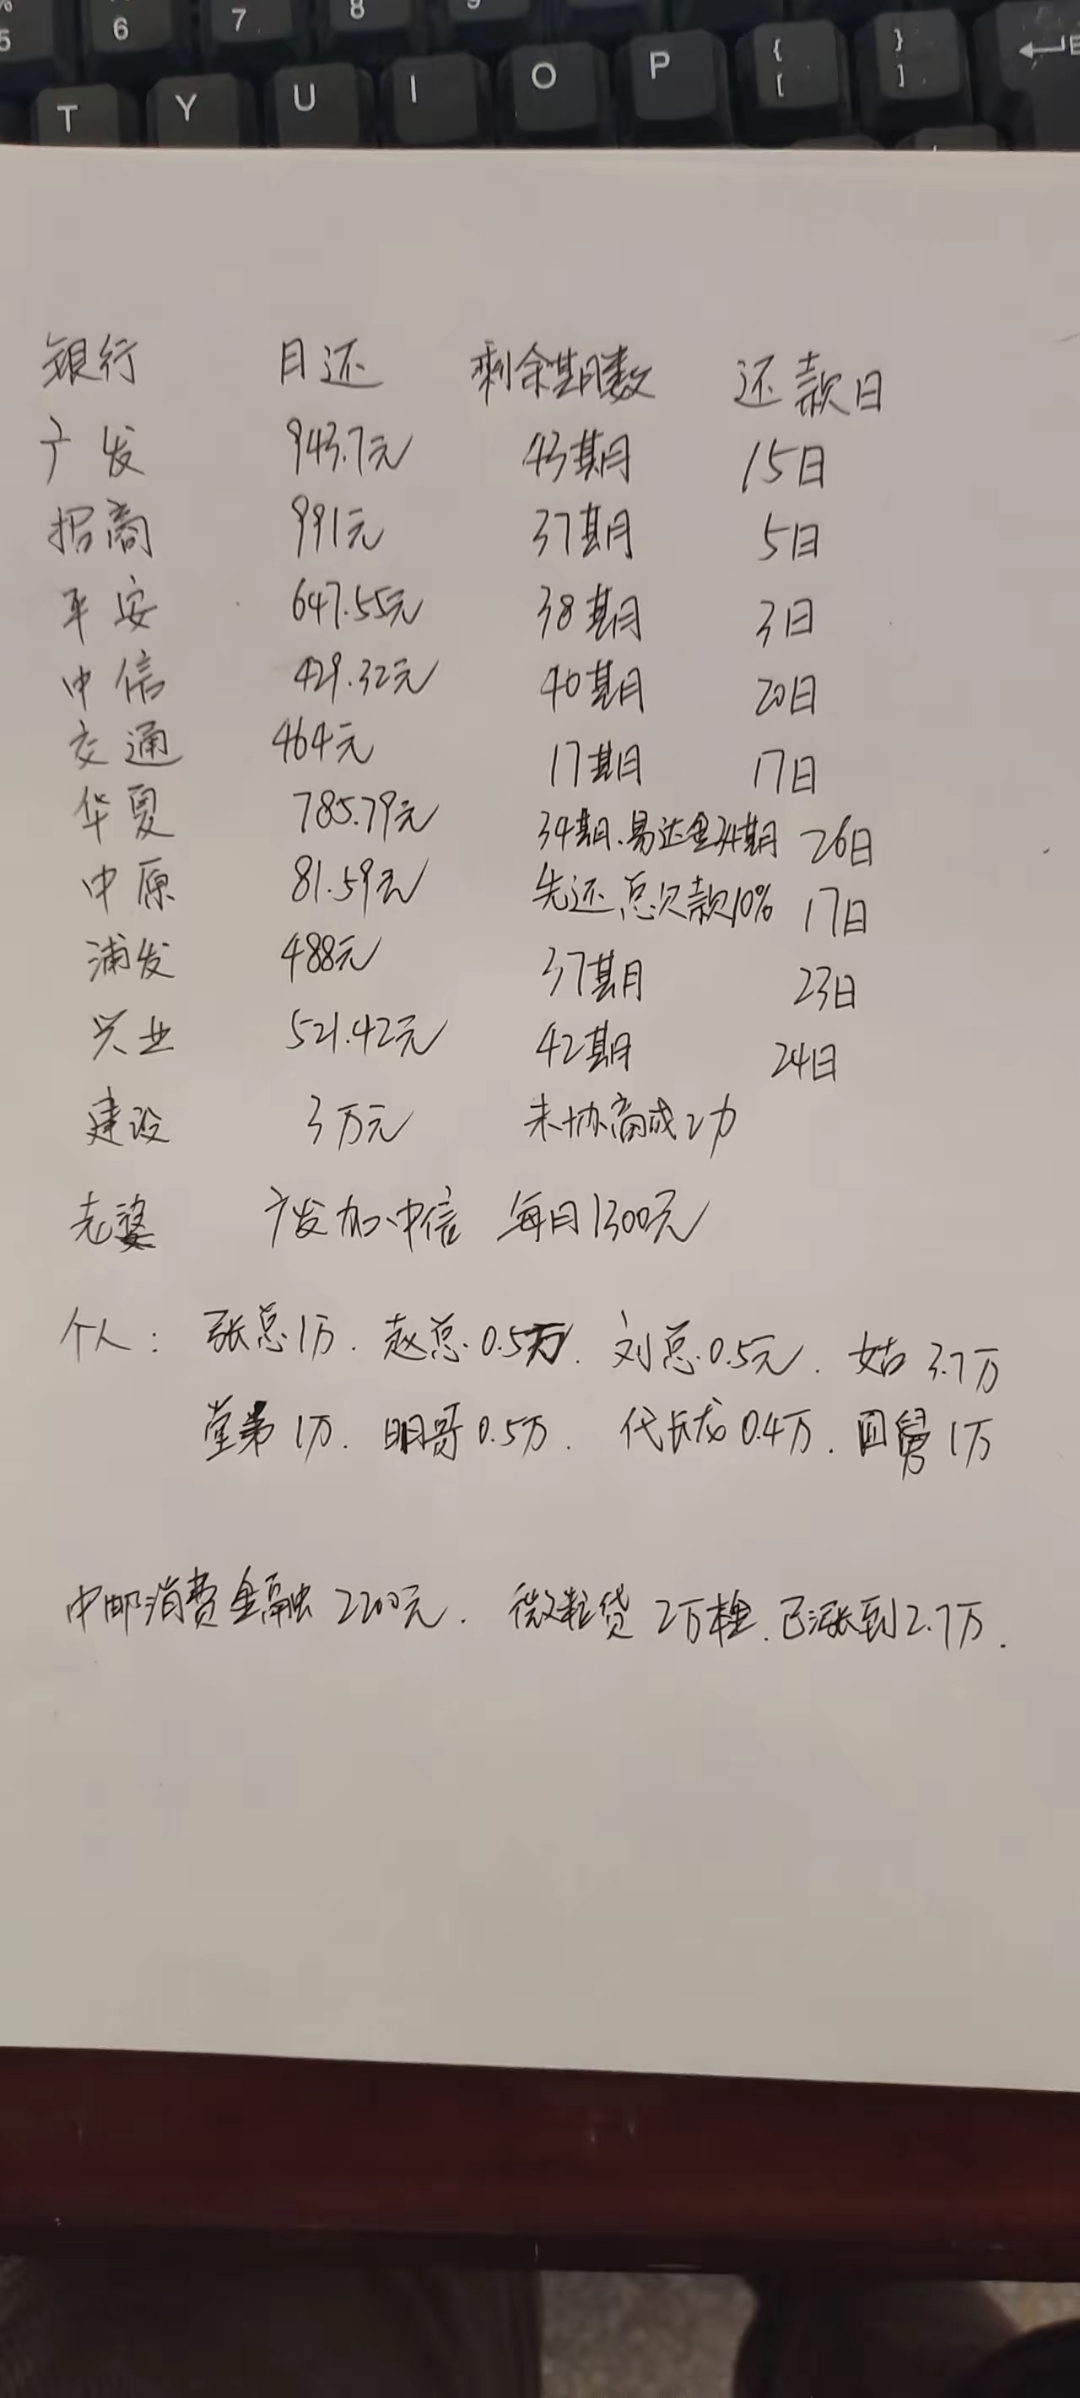 5 6 7 8 9
T Y U I O P { [ } ]
银行 月还 剩余期数 还款日
广发 943.7元 43期 15日
招商 991元 37期 5日
平安 647.55元 38期 3日
中信 429.32元 40期 20日
交通 464元 17期 17日
华夏 785.79元 34期、易达金34期 26日
中原 81.59元 先还总欠款10% 17日
浦发 488元 37期 23日
兴业 521.42元 42期 24日
建设 3万元 未协商成功
老婆 广发加中信 每月1300元
个人: 张总1万. 赵总.0.5万. 刘总.0.5元. 姑3.7万
堂弟1万. 明哥0.5万. 代长龙0.4万. 四舅1万
中邮消费金融2200元. 微粒贷 2万 .已涨到2.7万.